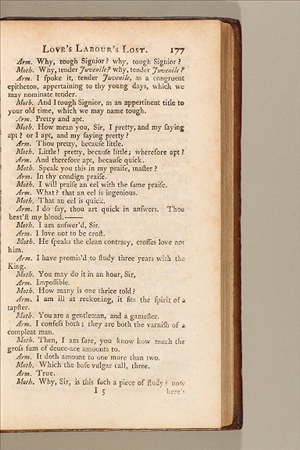 LOVE'S LABOUR'S LOST. 177
Arm. Why, tough Signior? why, tough Signior?
Moth. Why, tender Juvenile? why, tender Juvenile?
Arm. I spoke it, tender Juvenile, as a congruent
epitheton, appertaining to thy young days, which we
may nominate tender.
Moth. And I tough Signior, as an appertinent title to
your old time, which we may name tough.
Arm. Pretty and apt.
Moth. How mean you, Sir, I pretty, and my saying
apt? or I apt, and my saying pretty?
Arm. Thou pretty, because little.
Moth. Little! pretty, because little; wherefore apt?
Arm. And therefore apt, because quick.
Moth. Speak you this in my praise, master?
Arm. In thy condign praise.
Moth. I will praise an eel with the same praise.
Arm. What? that an eel is ingenious.
Moth. That an eel is quick.
Arm. I do say, thou art quick in answers. Thou
heat'st my blood.——
Moth. I am answer'd, Sir.
Arm. I love not to be crost.
Moth. He speaks the clean contrary, crosses love not
him.
Arm. I have promis'd to study three years with the
King.
Moth. You may do it in an hour, Sir,
Arm. Impossible.
Moth. How many is one thrice told?
Arm. I am ill at reckoning, it fits the spirit of a
tapster.
Moth. You are a gentleman, and a gamester.
Arm. I confess both; they are both the varnish of a
compleat man.
Moth. Then, I am sure, you know how much the
gross sum of deuce-ace amounts to.
Arm. It doth amount to one more than two.
Moth. Which the base vulgar call, three.
Arm. True.
Moth. Why, Sir, is this such a piece of study? now
I 5 here's